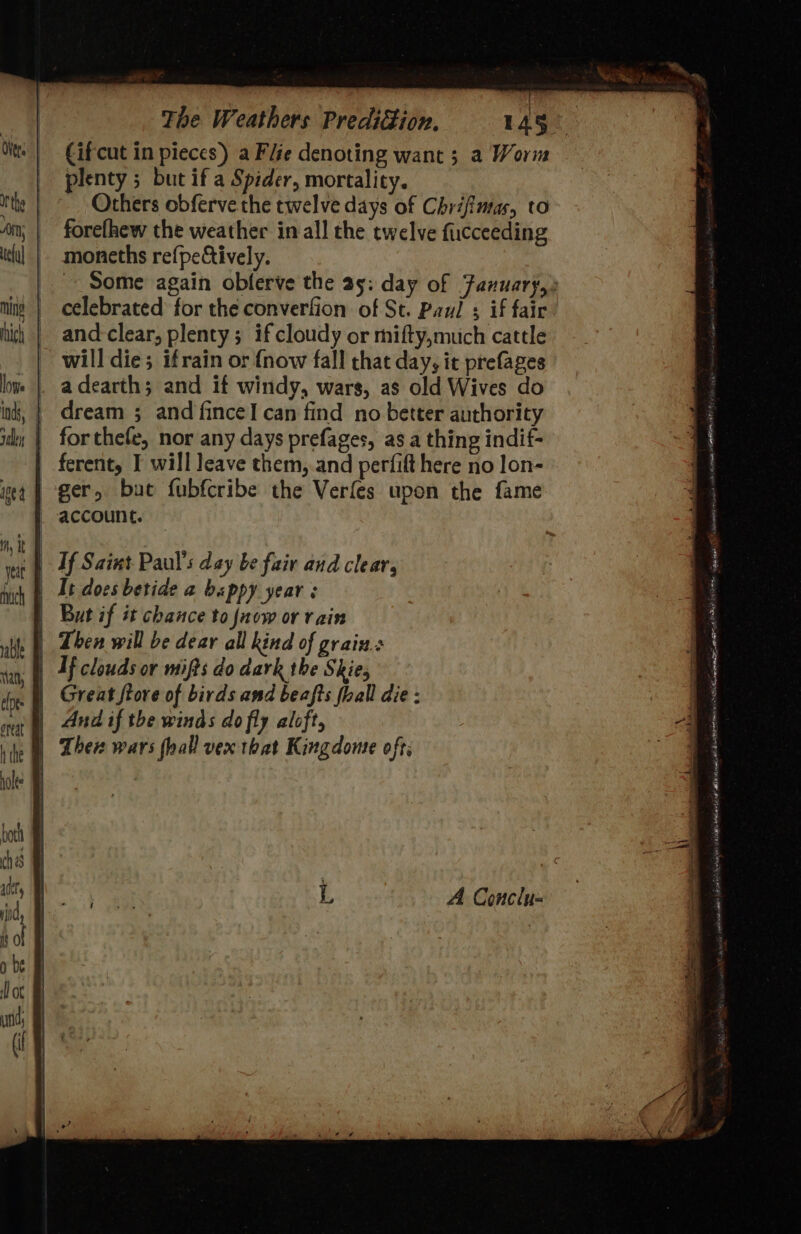 The Weathers Prediction. 145
(if cut in pieces) a Flie denoting want ; a Worm
plenty ; but if a Spider, mortality.
Others obſerve the twelve days of Chriſtmas, to
foreſhew the weather in all the twelve ſucceeding
moneths reſpectively.
Some again obſerve the 25: day of January,
celebrated for the converſion of St. Paul ; if fair
and clear, plenty ; if cloudy or miſty, much cattle
will die ; if rain or ſnow fall that day, it preſages
a dearth ; and if windy, wars, as old Wives do
dream ; and ſince I can find no better authority
for theſe, nor any days preſages, as a thing indif-
ferent, I will leave them, and perſiſt here no lon-
ger, but ſubſcribe the Verſes upon the ſame
account.
If Saint Paul's day be fair and clear,
It does betide a happy year :
But if it chance to ſnow or rain
Then will be dear all kind of grain :
If clouds or miſts do dark the Skie,
Great ſtore of birds and beaſts ſhall die :
And if the winds do fly aloft,
Then wars ſhall vex that Kingdome oft.
L A Conclu-